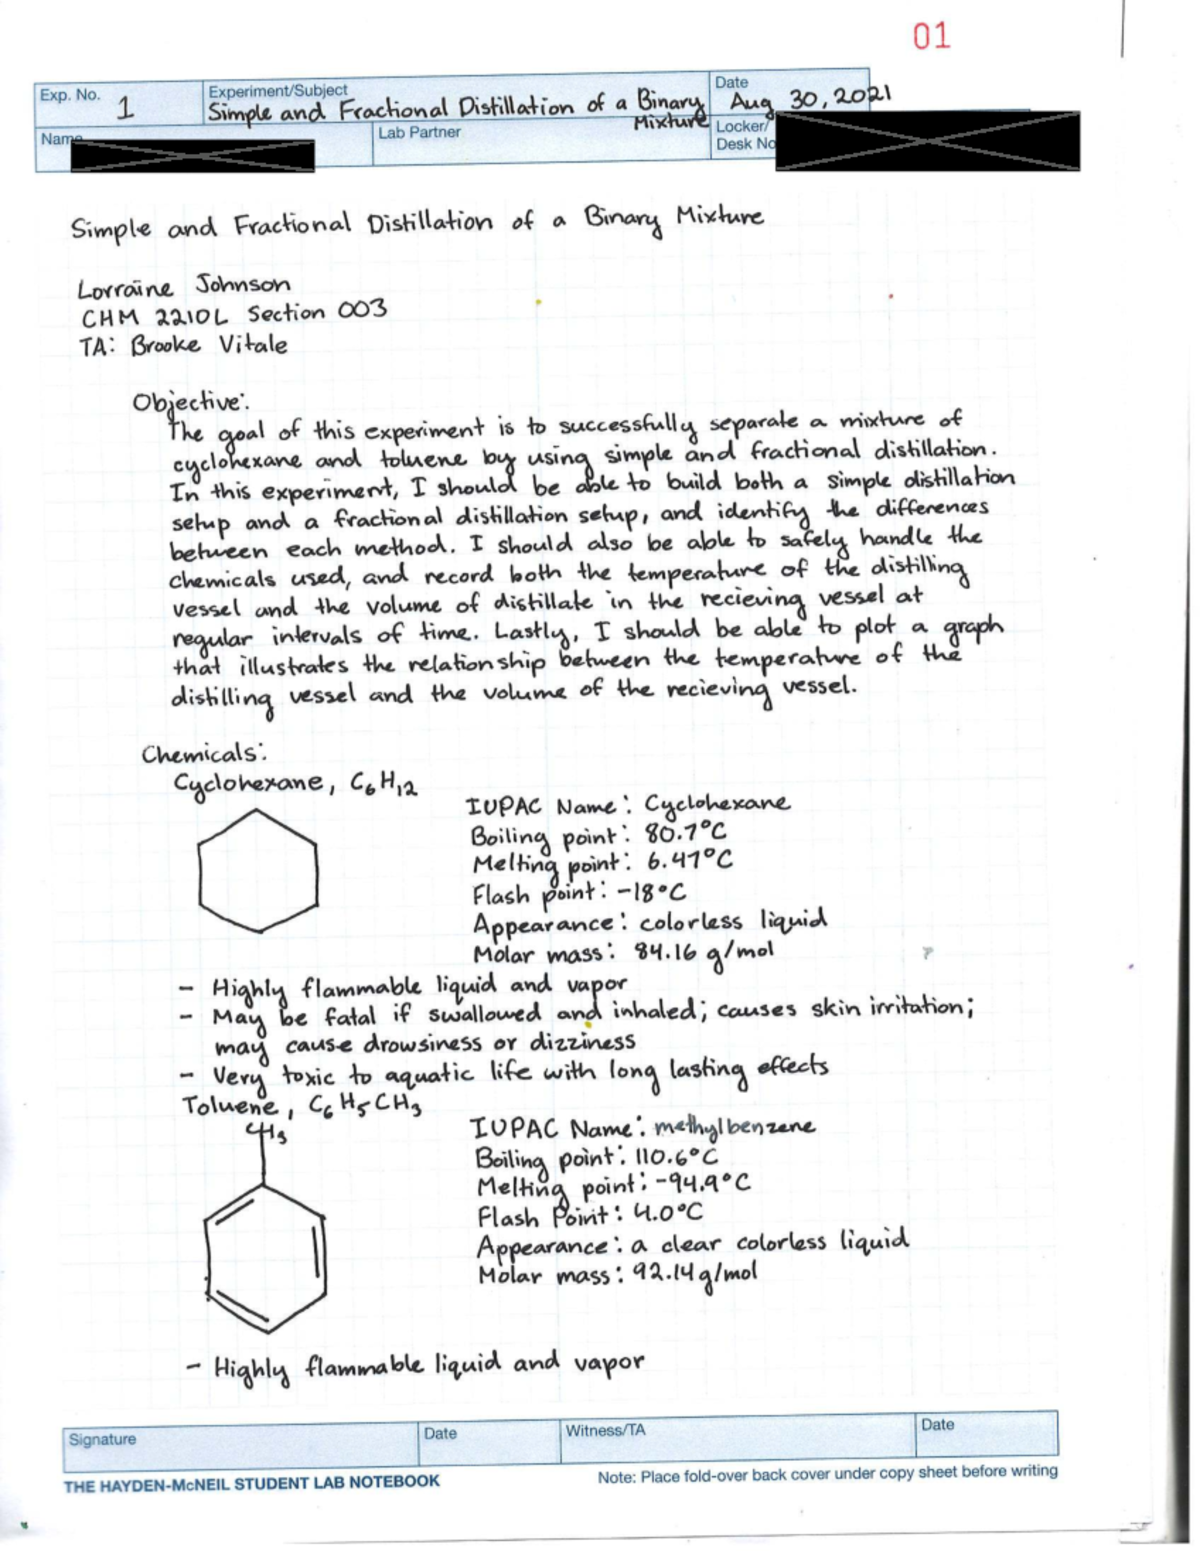 01
Exp. No. 1
Experiment/Subject
Simple and Fractional Distillation of a Binary
Mixture
Date
Aug 30, 2021
Name
Lab Partner
Locker/
Desk No
Simple and Fractional Distillation of a Binary Mixture
Lorraine Johnson
CHM 2210L Section 003
TA: Brooke Vitale
Objective:
The goal of this experiment is to successfully separate a mixture of
cyclohexane and toluene by using simple and fractional distillation.
In this experiment, I should be able to build both a simple distillation
setup and a fractional distillation setup, and identify the differences
between each method. I should also be able to safely handle the
chemicals used, and record both the temperature of the distilling
vessel and the volume of distillate in the recieving vessel at
regular intervals of time. Lastly, I should be able to plot a graph
that illustrates the relationship between the temperature of the
distilling vessel and the volume of the recieving vessel.
Chemicals:
Cyclohexane, C6H12
IUPAC Name: Cyclohexane
Boiling point: 80.7°C
Melting point: 6.47°C
Flash point: -18°C
Appearance: colorless liquid
Molar mass: 84.16 g/mol
- Highly flammable liquid and vapor
- May be fatal if swallowed and inhaled; causes skin irritation;
may cause drowsiness or dizziness
- Very toxic to aquatic life with long lasting effects
Toluene, C6H5CH3
CH3
IUPAC Name: methylbenzene
Boiling point: 110.6°C
Melting point: -94.9°C
Flash Point: 4.0°C
Appearance: a clear colorless liquid
Molar mass: 92.14 g/mol
- Highly flammable liquid and vapor
Signature
Date
Witness/TA
Date
THE HAYDEN-McNEIL STUDENT LAB NOTEBOOK
Note: Place fold-over back cover under copy sheet before writing